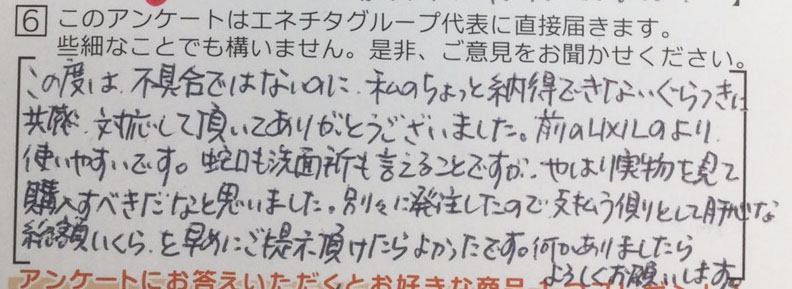 6 このアンケートはエネチタグループ代表に直接届きます。
些細なことでも構いません。是非、ご意見をお聞かせください。
この度は、不具合ではないのに、私のちょっと納得できないぐらつきに
共感、対応して頂いてありがとうございました。前のLIXILのより
使いやすいです。蛇口も洗面所も言えることですが、やはり実物を見て
購入すべきだなと思いました。別々に発注したので支払う側りとして肝心な
総額いくら、を早めにご提示頂けたらよかったです。何かありましたら
よろしくお願いします。
アンケートにお答えいただくとお好きな商品